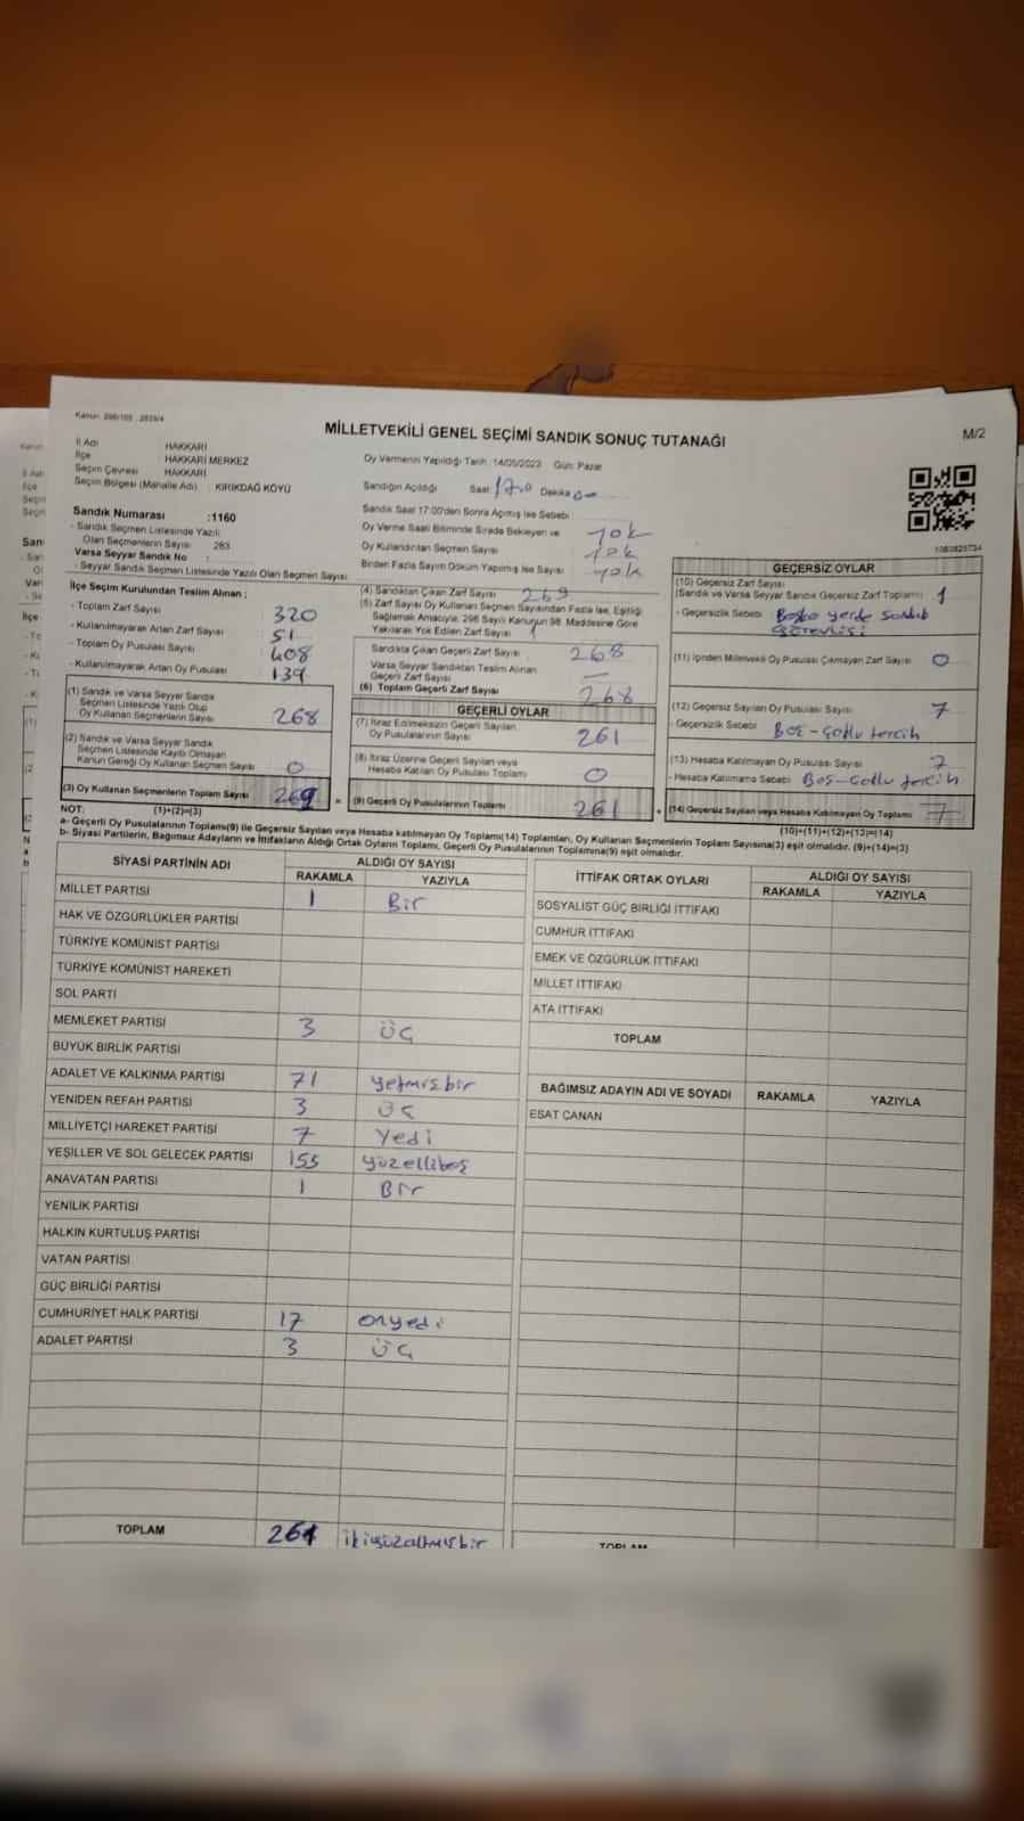 Kanun: 298/105 , 2839/4
MİLLETVEKİLİ GENEL SEÇİMİ SANDIK SONUÇ TUTANAĞI
M/2
İl Adı HAKKARİ
İlçe HAKKARİ MERKEZ
Seçim Çevresi HAKKARİ
Seçim Bölgesi (Mahalle Adı) : KIRIKDAĞ KÖYÜ
Sandık Numarası :1160
- Sandık Seçmen Listesinde Yazılı
Olan Seçmenlerin Sayısı 283
Varsa Seyyar Sandık No :
- Seyyar Sandık Seçmen Listesinde Yazılı Olan Seçmen Sayısı
Oy Vermenin Yapıldığı Tarih: 14/05/2023 Gün: Pazar
Sandığın Açıldığı Saat: Dakika
Sandık Saat 17:00'den Sonra Açılmış İse Sebebi :
Oy Verme Saati Bitiminde Sırada Bekleyen ve yok
Oy Kullandırılan Seçmen Sayısı yok
Birden Fazla Sayım Döküm Yapılmış İse Sayısı yok
İlçe Seçim Kurulundan Teslim Alınan :
- Toplam Zarf Sayısı 320
- Kullanılmayarak Artan Zarf Sayısı 51
- Toplam Oy Pusulası Sayısı 408
- Kullanılmayarak Artan Oy Pusulası 139
(1) Sandık ve Varsa Seyyar Sandık
Seçmen Listesinde Yazılı Olup
Oy Kullanan Seçmenlerin Sayısı 268
(2) Sandık ve Varsa Seyyar Sandık
Seçmen Listesinde Kayıtlı Olmayan
Kanun Gereği Oy Kullanan Seçmen Sayısı 0
(3) Oy Kullanan Seçmenlerin Toplam Sayısı 269
(4) Sandıktan Çıkan Zarf Sayısı 269
(5) Zarf Sayısı Oy Kullanan Seçmen Sayısından Fazla İse, Eşitliği
Sağlamak Amacıyla, 298 Sayılı Kanunun 98. Maddesine Göre
Yakılarak Yok Edilen Zarf Sayısı
Sandıkta Çıkan Geçerli Zarf Sayısı 268
Varsa Seyyar Sandıktan Teslim Alınan
Geçerli Zarf Sayısı —
(6) Toplam Geçerli Zarf Sayısı 268
GEÇERLİ OYLAR
(7) İtiraz Edilmeksizin Geçerli Sayılan
Oy Pusulalarının Sayısı 261
(8) İtiraz Üzerine Geçerli Sayılan veya
Hesaba Katılan Oy Pusulası Toplamı 0
(9) Geçerli Oy Pusulalarının Toplamı 261
1080825734
GEÇERSİZ OYLAR
(10) Geçersiz Zarf Sayısı
(Sandık ve Varsa Seyyar Sandık Geçersiz Zarf Toplamı) 1
- Geçersizlik Sebebi Başka yerde sandık
görevlisi
(11) İçinden Milletvekili Oy Pusulası Çıkmayan Zarf Sayısı 0
(12) Geçersiz Sayılan Oy Pusulası Sayısı 7
- Geçersizlik Sebebi Boş-çoklu tercih
(13) Hesaba Katılmayan Oy Pusulası Sayısı 7
- Hesaba Katılmama Sebebi Boş-çoklu tercih
(14) Geçersiz Sayılan veya Hesaba Katılmayan Oy Toplamı 7
NOT: (1)+(2)=(3)
(10)+(11)+(12)+(13)=(14)
a- Geçerli Oy Pusulalarının Toplamı(9) ile Geçersiz Sayılan veya Hesaba katılmayan Oy Toplamı(14) Toplamları, Oy Kullanan Seçmenlerin Toplam Sayısına(3) eşit olmalıdır. (9)+(14)=(3)
b- Siyasi Partilerin, Bağımsız Adayların ve İttifakların Aldığı Ortak Oyların Toplamı, Geçerli Oy Pusulalarının Toplamına(9) eşit olmalıdır.
SİYASİ PARTİNİN ADI ALDIĞI OY SAYISI
RAKAMLA YAZIYLA
MİLLET PARTİSİ 1 Bir
HAK VE ÖZGÜRLÜKLER PARTİSİ
TÜRKİYE KOMÜNİST PARTİSİ
TÜRKİYE KOMÜNİST HAREKETİ
SOL PARTİ
MEMLEKET PARTİSİ 3 üç
BÜYÜK BİRLİK PARTİSİ
ADALET VE KALKINMA PARTİSİ 71 yetmişbir
YENİDEN REFAH PARTİSİ 3 üç
MİLLİYETÇİ HAREKET PARTİSİ 7 Yedi
YEŞİLLER VE SOL GELECEK PARTİSİ 155 yüzellibeş
ANAVATAN PARTİSİ 1 Bir
YENİLİK PARTİSİ
HALKIN KURTULUŞ PARTİSİ
VATAN PARTİSİ
GÜÇ BİRLİĞİ PARTİSİ
CUMHURİYET HALK PARTİSİ 17 onyedi
ADALET PARTİSİ 3 üç
TOPLAM 261 ikiyüzaltmışbir
İTTİFAK ORTAK OYLARI ALDIĞI OY SAYISI
RAKAMLA YAZIYLA
SOSYALİST GÜÇ BİRLİĞİ İTTİFAKI
CUMHUR İTTİFAKI
EMEK VE ÖZGÜRLÜK İTTİFAKI
MİLLET İTTİFAKI
ATA İTTİFAKI
TOPLAM
BAĞIMSIZ ADAYIN ADI VE SOYADI RAKAMLA YAZIYLA
ESAT CANAN
TOPLAM